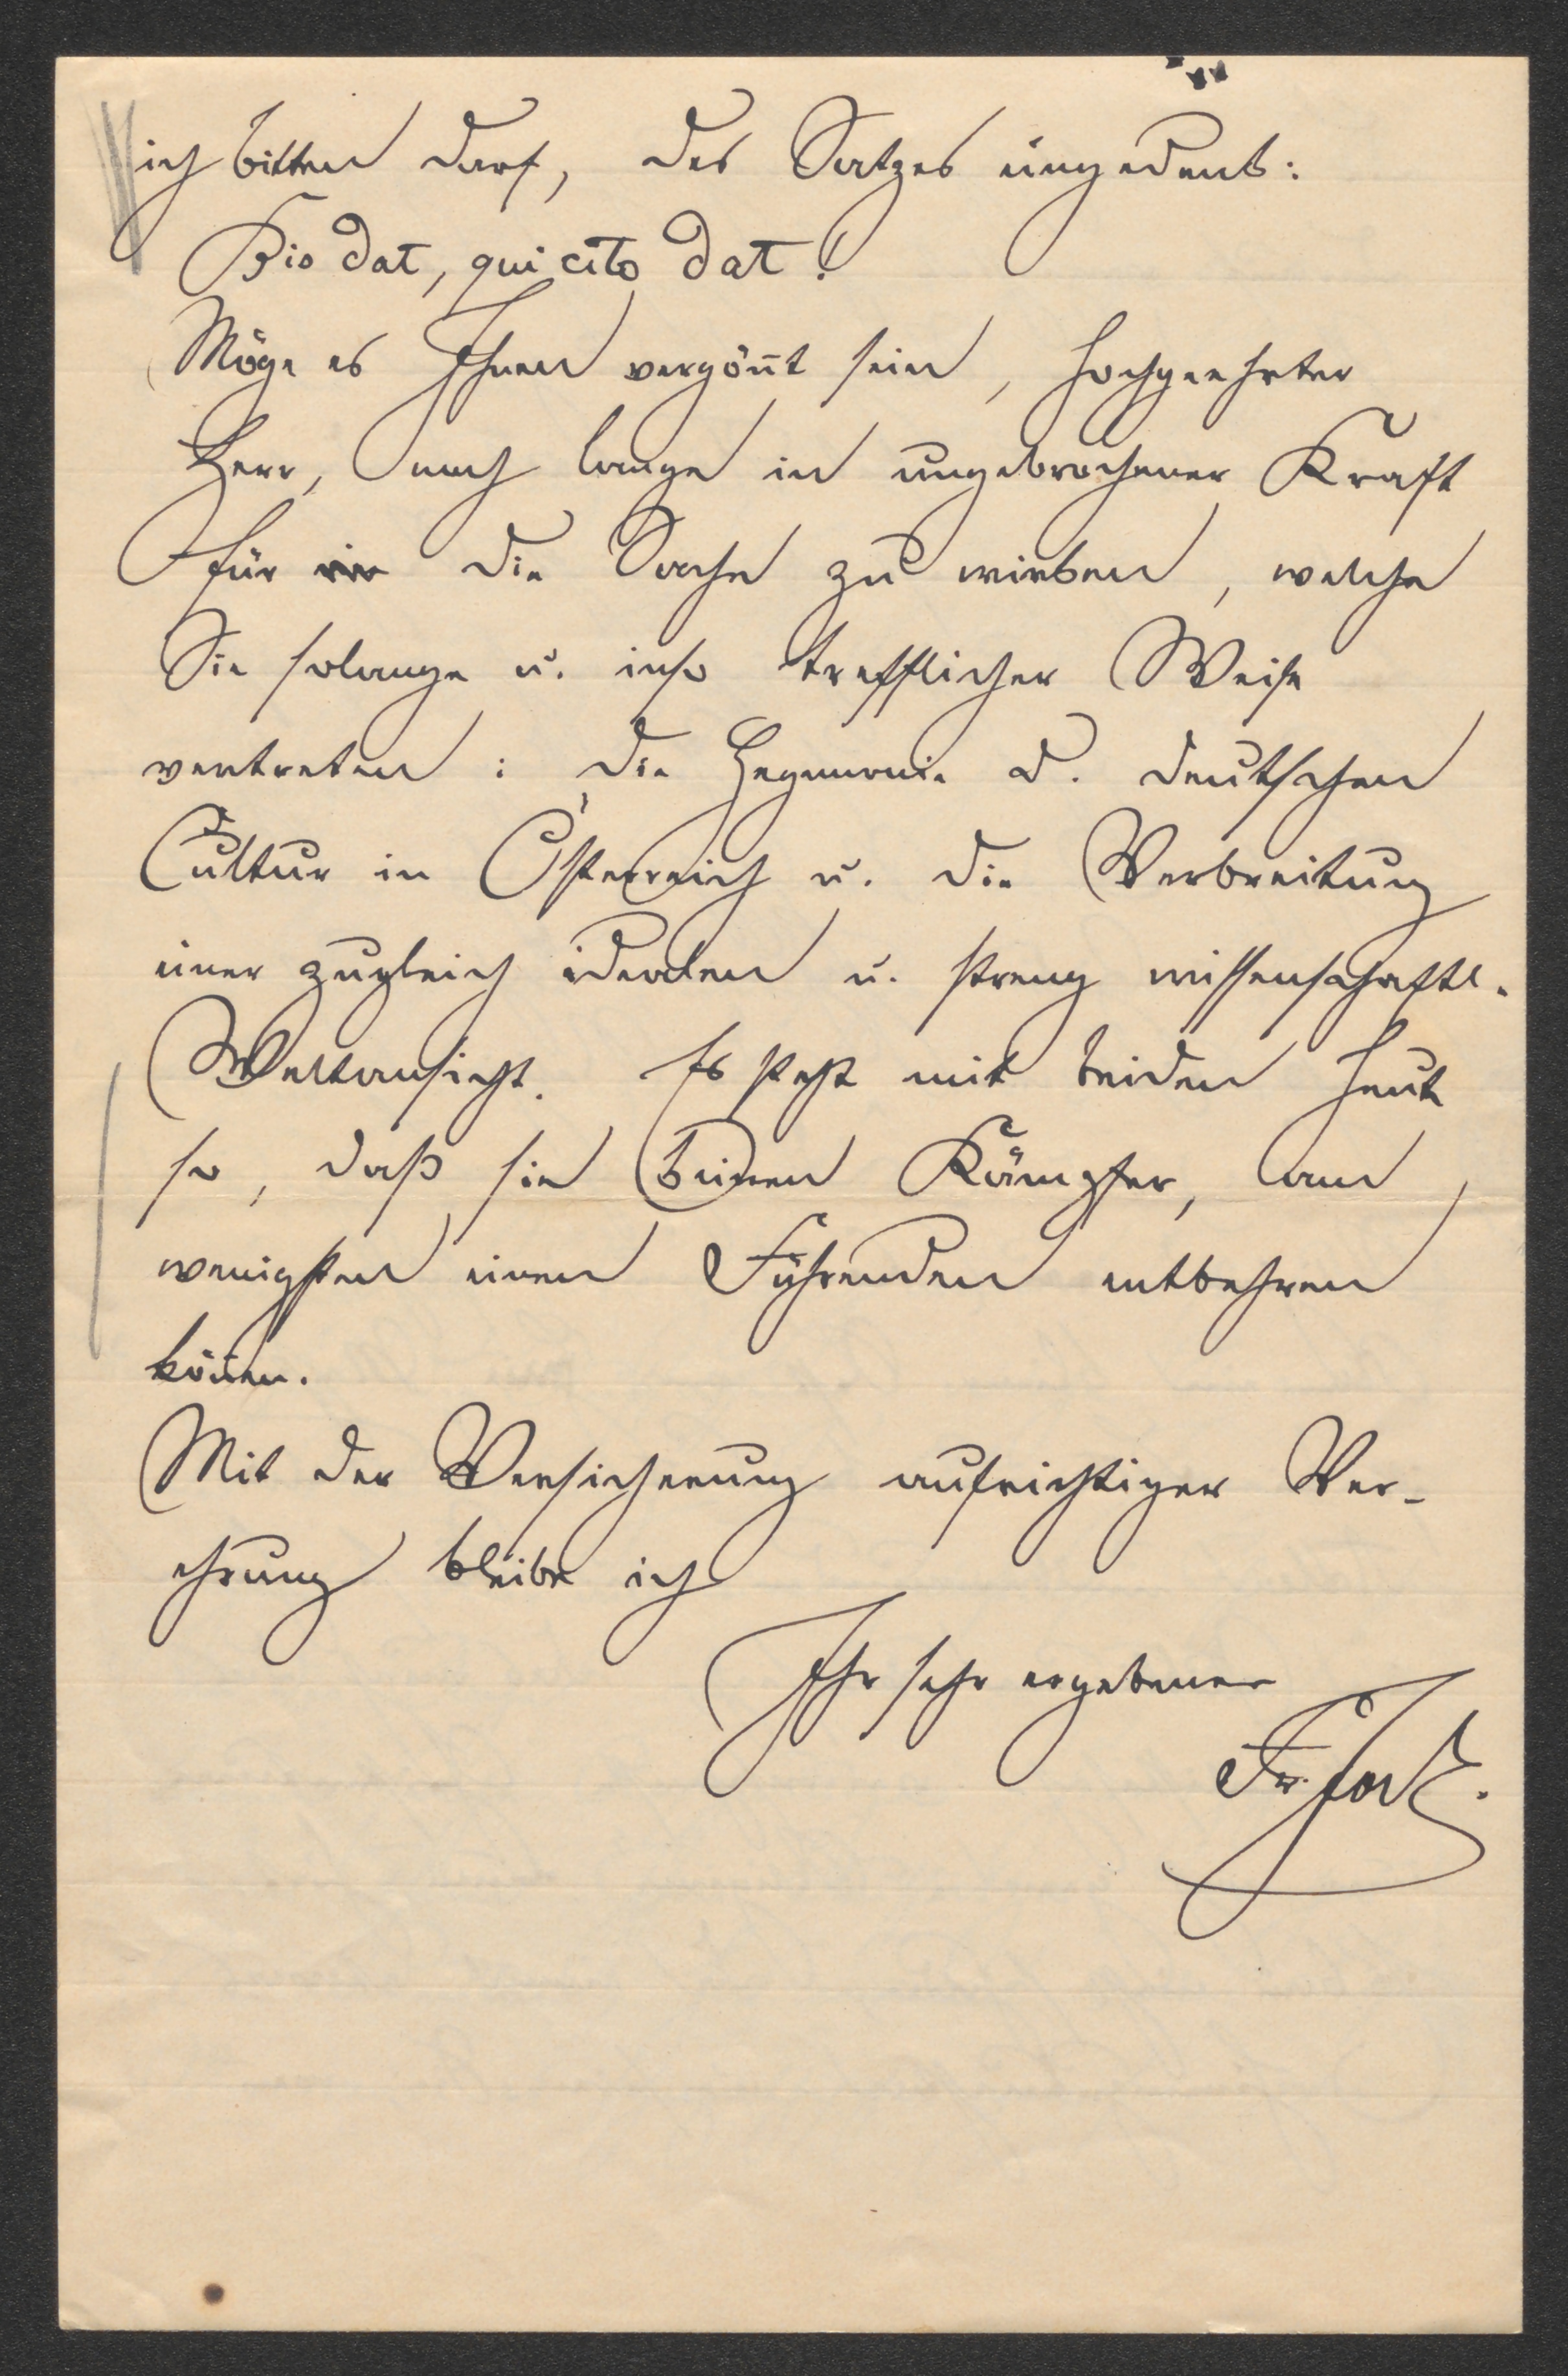 ich bitten darf, des Satzes eingedenk:
Bis dat, qui cito dat!
Möge es Ihnen vergön̄t sein, hochgeehrter
Herr, noch lange in ungebrochener Kraft
für die Sache zu wirken, welche
Sie solange u. in so trefflicher Weise
vertreten: die Hegemonie d. deutschen
Cultur in Österreich u. die Verbreitung
einer zugleich idealen u. streng wissenschaftl.
Weltansicht. Es steht mit beiden heut
so, daß sie keinen Kämpfer, am
wenigsten einen Führenden entbehren
kön̄en.
Mit der Versicherung aufrichtiger Ver-
ehrung bleibe ich
Ihr sehr ergebener
Fr. Jodl.